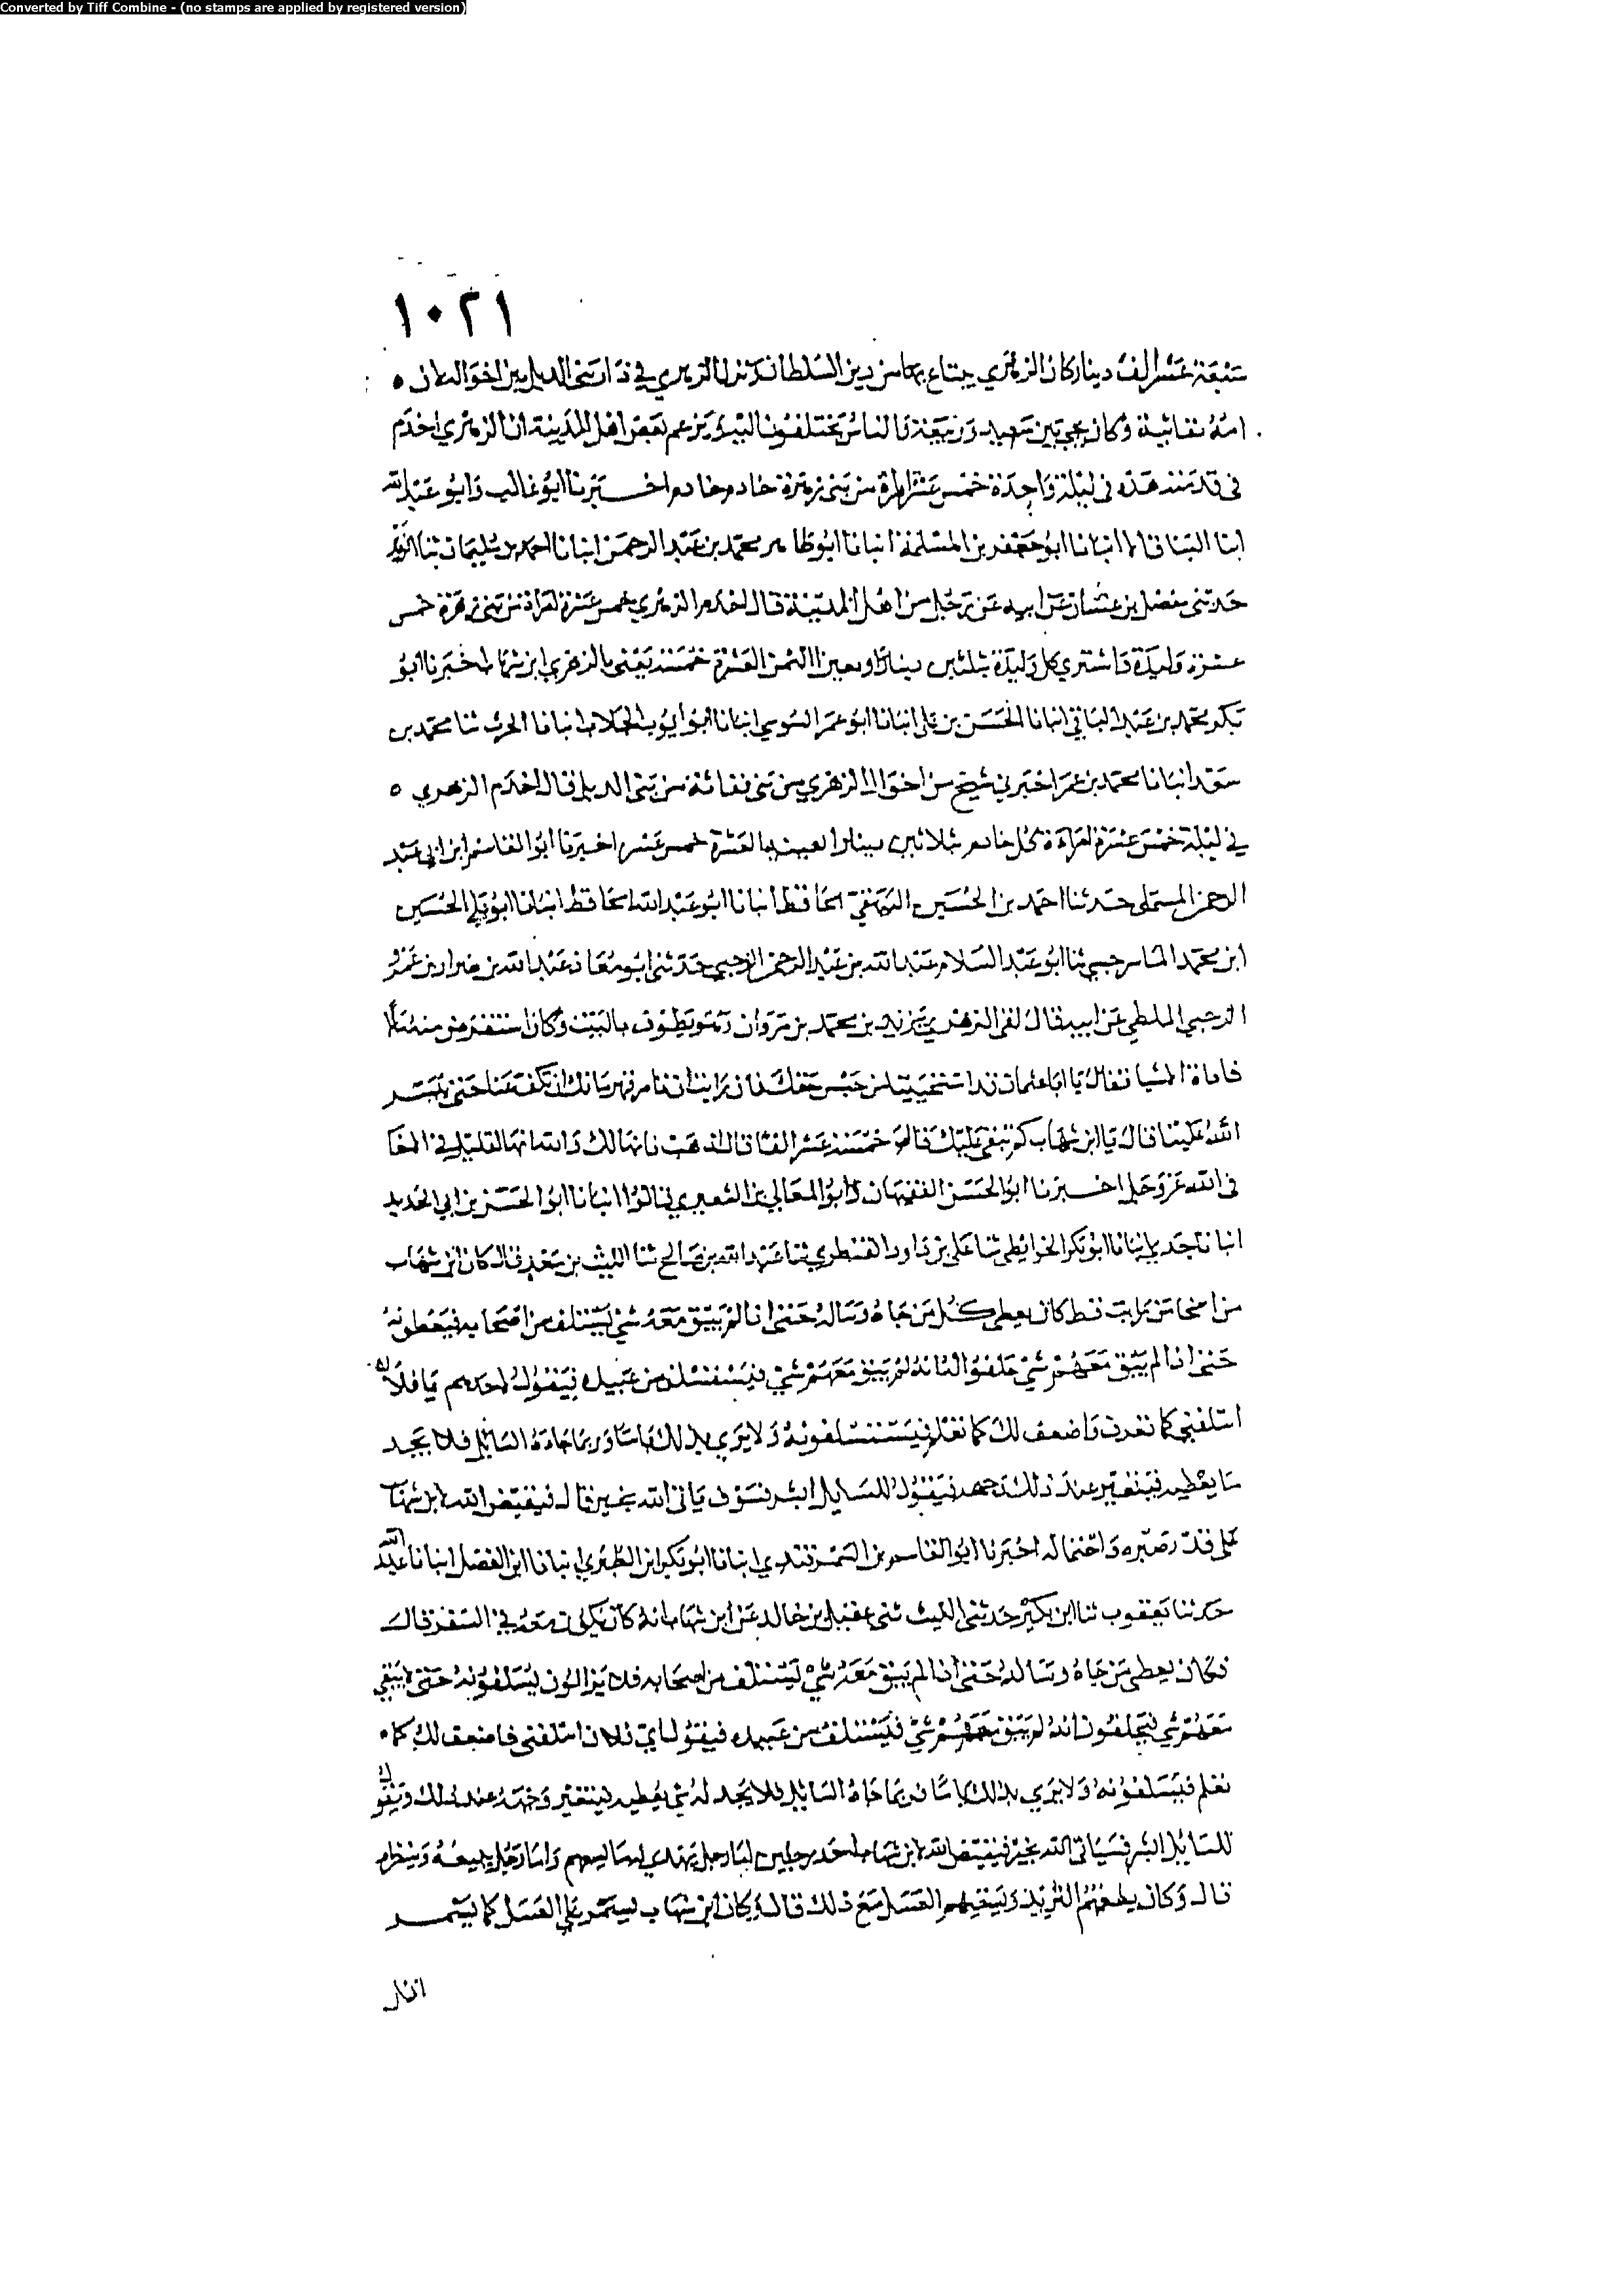 Converted by Tiff Combine - (no stamps are applied by registered version)
١٠٢١
سبعة عشر الف دينار كان الزهري يبتاع بها من دين السلطان نزل الزهري في دار بني الديل بين اخواله لان ه
امه نفاثية وكان يجي بين سعيد وربيعة فالناس يختلفون اليه ويزعم بعض اهل المدينة ان الزهري اخدم
في قدمته هذه في ليلة واحدة خمس عشرة امراة من بني زهرة خادم خادم اخبرنا ابو غالب وابو عبد الله
ابنا البنا قالا انبانا ابو جعفر بن المسلمة انبانا ابو طاهر محمد بن عبد الرحمن انبانا احمد بن سليمان ثنا الزبير
حدثني مفضل بن غسان عن ابيه عن رجل من اهل المدينة قال اخدم الزهري خمس عشرة امراة من بني زهرة خمس
عشرة وليدة فاشترى كل وليدة بثلثين دينارا العشرة خمسة يعني بالزهري ابن شهاب اخبرنا ابو
بكر محمد بن عبد الباقي انبانا الحسن بن علي انبانا ابو عمر السوسي انبانا ابو ايوب الجلاب انبانا الحرث ثنا محمد بن
سعد انبانا محمد بن عمر اخبرني شيخ من اخوال الزهري من بني نفاثة من بني الديل قال اخدم الزهري ه
في ليلة خمس عشرة امراة كل خادم ثلاثين دينارا العشرة خمس عشر اخبرنا ابو القاسم ابن ابي عبد
الرحمن المستملي حدثنا احمد بن الحسين البيهقي الحافظ انبانا ابو عبد الله الحافظ انبانا ابو علي الحسين
ابن محمد الماسرجسي ثنا ابو عبد السلام عبد الله بن عبد الرحمن الرحبي حدثني ابو معاذ عبد الله بن ضرار بن عمرو
الرحبي الملطي عن ابيه قال لقي الزهري يزيد بن محمد بن مروان وهو يطوف بالبيت وكان استقرض منه مالا
فاداه اشيا فقال يا ابا عثمان قد استحييت من حبس حقك فان رايت ان تامر قهرمانك ان يكف عنا حتى ييسر
الله علينا فقال يا ابن شهاب كم بقي عليك قال خمسة عشر الفا قال اذهب فانها لك والله انها لقليل في المخا
في الله عز وجل اخبرنا ابو الحسن الفقيهان وابو المعالي بن الشعيري قالوا انبانا ابو الحسن بن ابي الحديد
انبانا جدي انبانا ابو بكر الخرائطي ثنا علي بن داود القنطري ثنا عبد الله بن صالح ثنا الليث بن سعد قال كان ابن شهاب
من اسخا من رايت قط كان يعطي كل من جاه وساله حتى اذا لم يبق معه شي يستلف من اصحابه فيعطونه
حتى اذا لم يبق معهم شي حلفوا له انه لم يبق معهم شي فيستسلف من عبيده فيقول لاحدهم يا فلان
اسلفني كما تعرف واضعف لك كما تعلم فيستسلفونه ولا يرى بذلك باسا وربما جاءه السائل فلا يجد
ما يعطيه فيتغير عند ذلك وجهه فيقول للسايل ابشر فسوف ياتي الله بخير قال فيقيض الله لابن شهاب
على قدر صبره واحتماله اخبرنا ابو القاسم بن السمرقندي انبانا ابو بكر ابن الطبري انبانا ابن الفضل انبانا عبد الله
حدثنا يعقوب ثنا ابن بكير حدثني الليث ثنى عقيل بن خالد عن ابن شهاب انه كان يكون معه في السفر قال
فكان يعطي من جاه وساله حتى اذا لم يبق معه شي يستلف من اصحابه فلا يزالون يسلفونه حتى لا يبقى
معهم شي فيحلفون انه لم يبق معهم شي فيستلف من عبيده فيقول اي فلان اسلفني فاضعف لك كما ه
تعلم فيسلفونه ولا يرى بذلك باسا فربما جاه السائل فلا يجد له شي يعطيه فيتغير وجهه عند ذلك ويقول
للسائل ابشر فسياتي الله بخير فيقيض الله لابن شهاب احد رجلين اما رجل يهدي له ما يسعهم واما رجل يبيعه وينظره
قال وكان يطعمهم الثريد ويسقيهم العسل مع ذلك قال وكان ابن شهاب يسمر على العسل كما يسمر